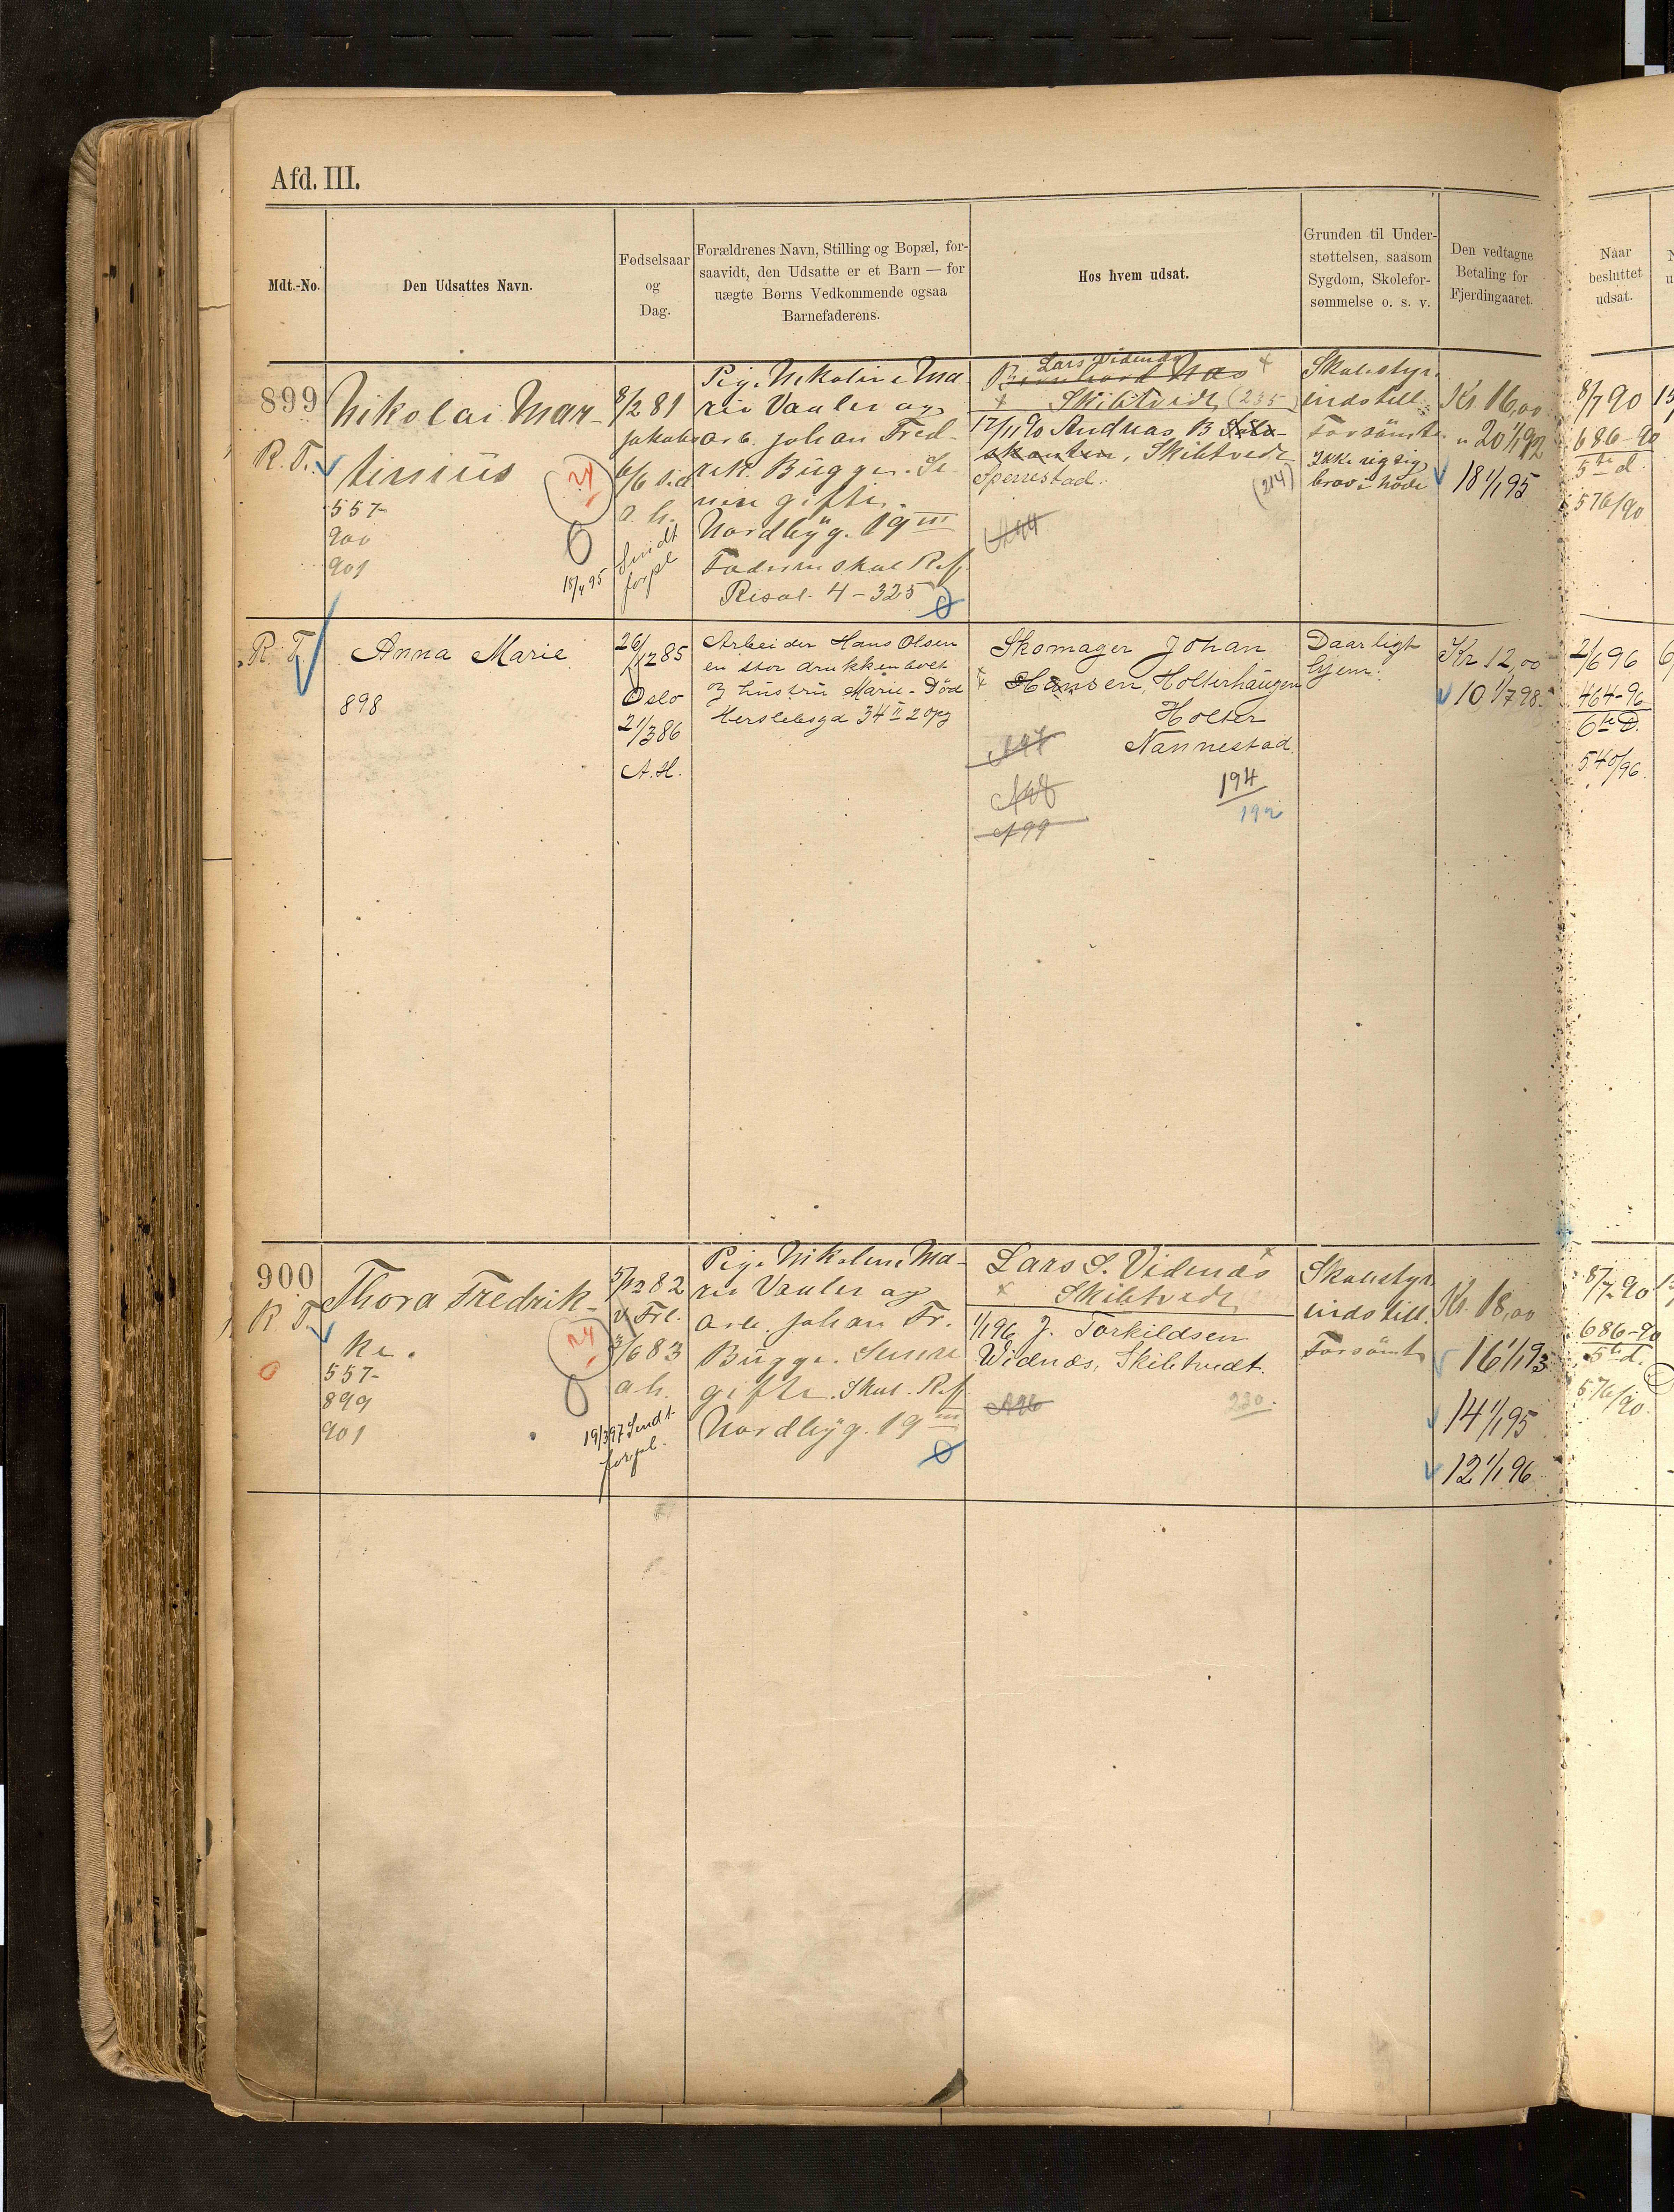 Afd. III.
Mdt.-No.
Den Udsattes Navn.
Fødselsaar
og
Dag.
Forældrenes Navn, Stilling og Bopæl, for-
saavidt, den Udsatte er et Barn — for
uægte Børns Vedkommende ogsaa
Barnefaderens.
Hos hvem udsat.
Grunden til Under-
støttelsen, saasom
Sygdom, Skolefor-
sømmelse o. s. v.
Den vedtagne
Betaling for
Fjerdingaaret.
Naar
besluttet
udsat.
899
R. T.
Nikolai Mar-
tinius
557-
900
901
24
15/4 95
8/2 81
Jakobs
6/6 s.a.
a. h.
Sendt
forpl
Pige Nikoline Ma-
rie Vauler og
arb. Johan Fred-
rik Bugge. Se-
nere gifte.
Nordbyg. 19 III
Faderen skal Ref.
Resol. 4-325
Lars Vidnæs
Bernhard Næs
Skibtvedt (235)
12/11 90 Andreas B
skanken, Skibtvedt
Spenestad.
(214)
Skolestyr.
indstill.
Forsömt
Ikke rigtig
brav i hode
Kr. 16,00
" 20 1/1 92
18 1/1 95
8/7 90
686-90
5te d.
576/90
R. T.
Anna Marie
898
26/12 85
Oslo
21/3 86
A. H.
Arbeider Hans Olsen
en stor drukkenbolt
og hustru Marie - Död
Herslebsgd 34 II 2 opg
Skomager Johan
Hansen, Holterhaugen
Holter
Nannestad.
A97
A98
A99
194
192
Daarligt
hjem.
Kr 12,00
10 1/7 98
2/6 96
464-96
6te D.
540/96
900
R. T.
Thora Fredrik-
ke.
557-
899
901
24
19/3 97 Sendt
forpl.
5/12 82
V Frl.
3/6 83
a. h.
Pige Nikoline Ma-
rie Vauler og
arb. Johan Fr.
Bugge. Senere
gifte. Skal Ref
Nordbyg. 19 III
Lars S. Vidnæs
Skibtvedt
1/1 96 J. Torkildsen
Widnæs, Skibtvedt.
A96
230.
Skolestyr.
indstill.
Forsömt
Kr. 18,00
16 1/1 93
14 1/1 95
12 1/1 96
8/7 90
686-90
5te d.
576/90